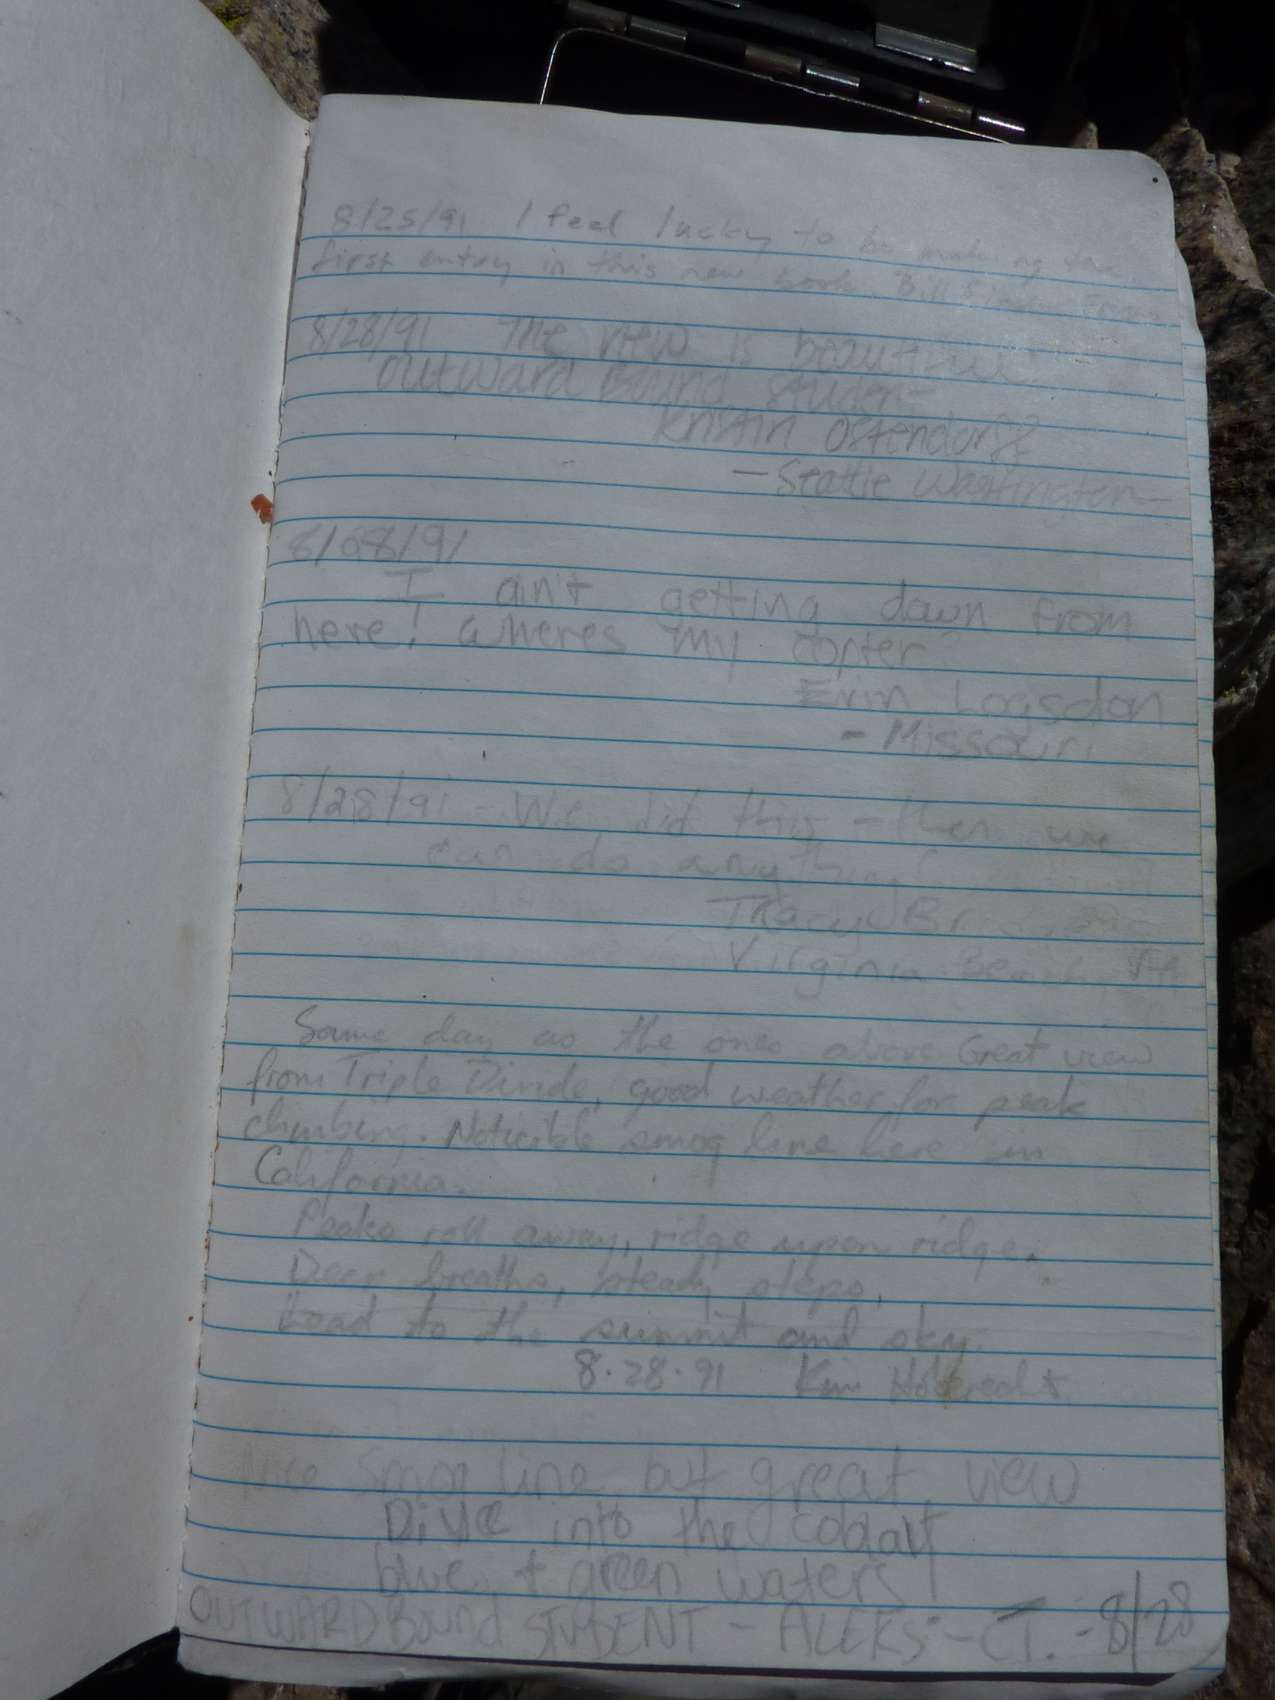 8/25/91 I feel lucky to be making the
first entry in this new book. Bill
8/28/91 The view is beautiful
Outward Bound Student
Kristin Ostendorf
- Seattle Washington
8/28/91
I ain't getting down from
here! wheres my copter?
Erin Logsdon
- Missouri
8/28/91 - We did this - then we
can do anything!
Tracy
Virginia Beach VA
Same day as the ones above. Great view
from Triple Divide, good weather for peak
climbing. Noticible smog line here in
California.
Peaks roll away, ridge upon ridge.
Deep breaths, steady steps,
Lead to the summit and sky.
8.28.91 Kim
Nice Smog line but great view
Dive into the cobalt
blue + green waters!
OUTWARD Bound STUDENT - ALEKS - CT. - 8/28